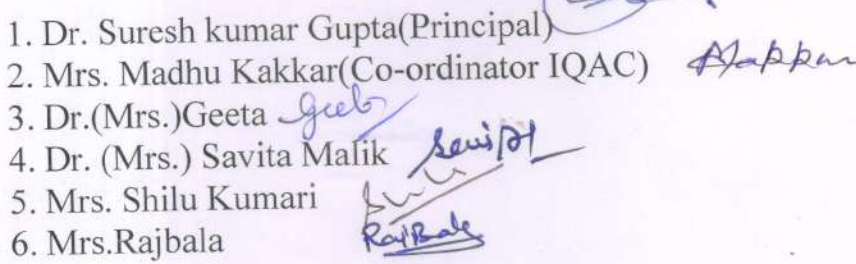 1. Dr. Suresh kumar Gupta(Principal)
2. Mrs. Madhu Kakkar(Co-ordinator IQAC)
3. Dr.(Mrs.)Geeta Geeta
4. Dr. (Mrs.) Savita Malik
5. Mrs. Shilu Kumari
6. Mrs.Rajbala RajBala